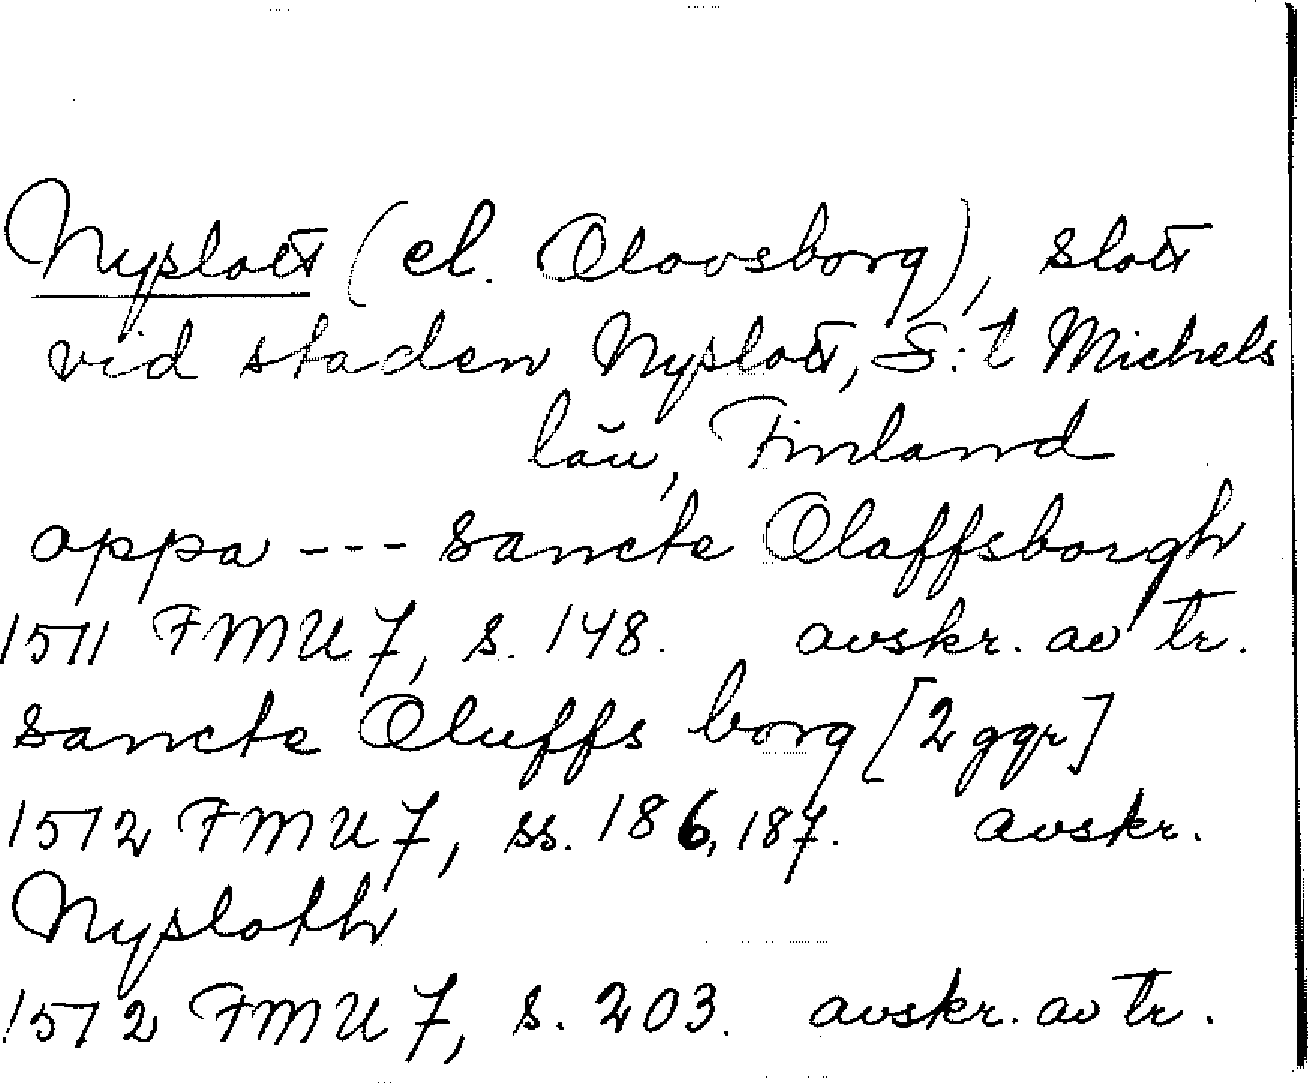 Nyslott (el. Olovsborg), slott
vid staden Nyslott, S:t Michels
län, Finland
oppa --- sancte Olaffsborgh
1511 FMU 7, s. 148. avskr. av tr.
sancte Oluffs borg [2 ggr]
1512 FMU 7, ss. 186, 187. avskr.
Nysloth
1512 FMU 7, s. 203. avskr. av tr.